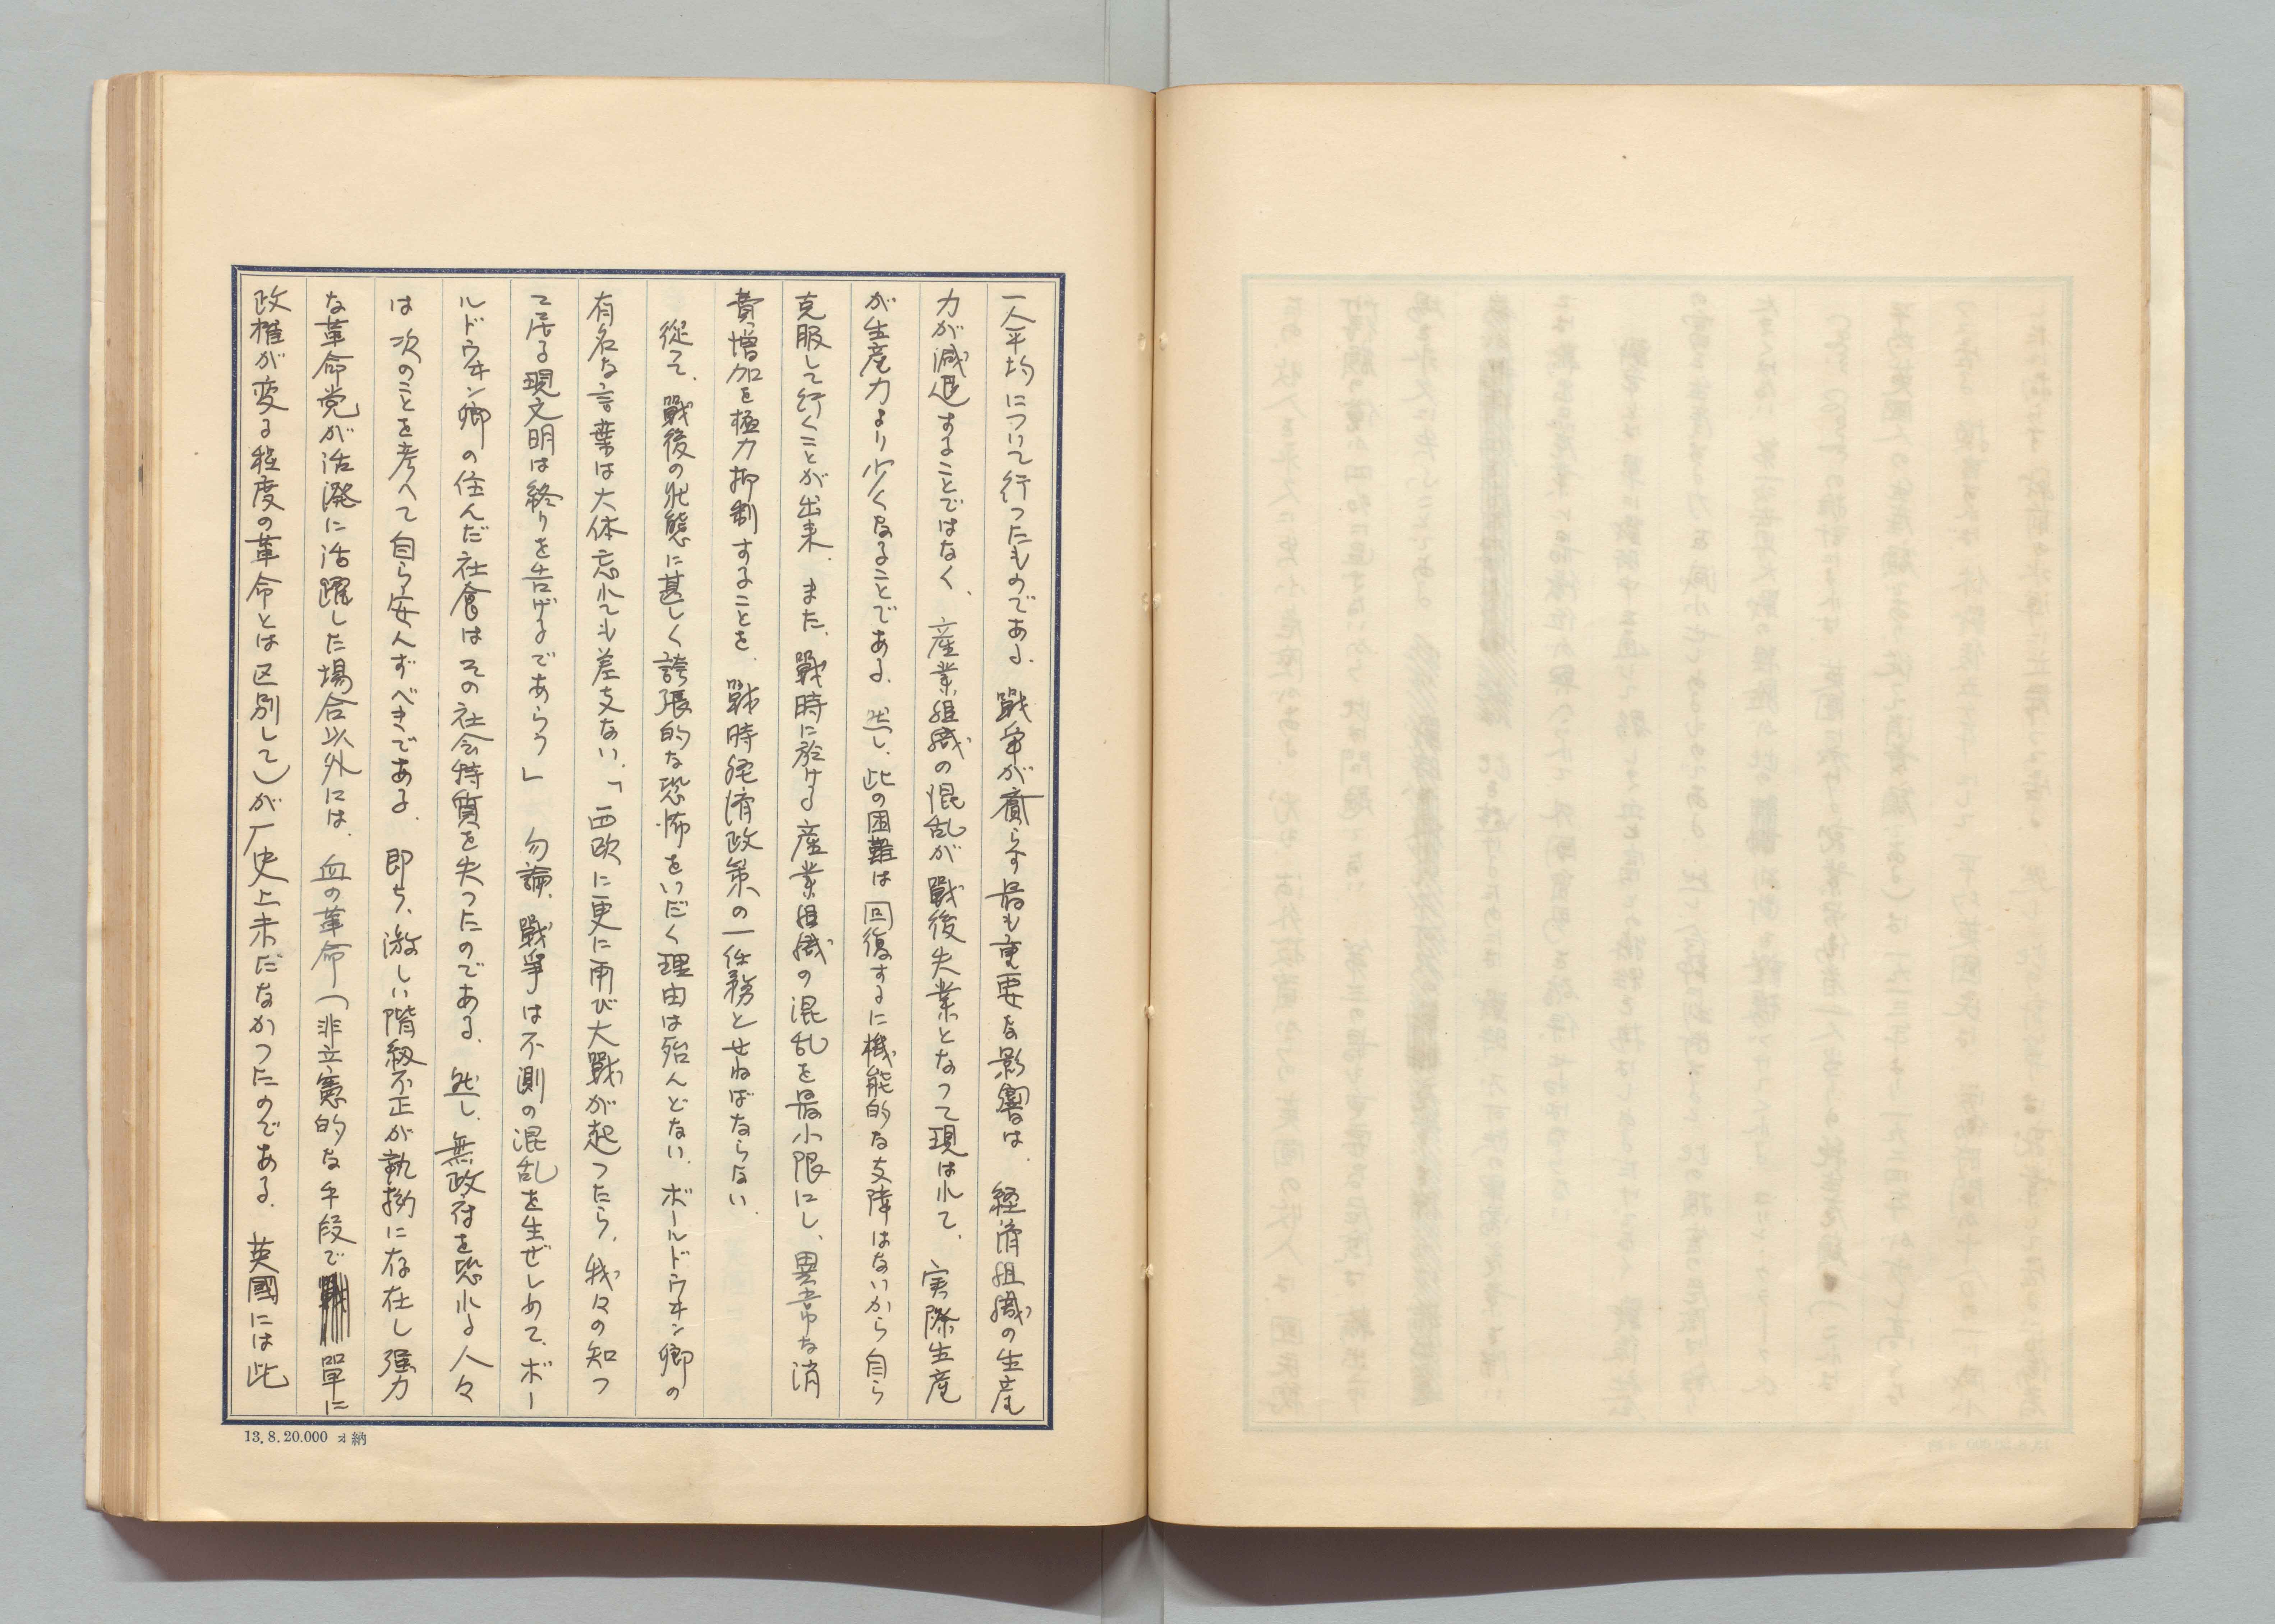 一人平均について行つたものである．戰争が齎らす最も重要な影響は．経済組織の生産
力が減退することではなく、産業組織の混乱が戰後失業となつて現はれて．実際生産
が生産力より少くなることである．然し、此の困難は回復するに機能的な支障はないから自ら
克服して行くことが出来．また、戰時に於ける産業組織の混乱を最小限にし、異常な消
費増加を極力抑制することを．戰時経済政策の一任務とせねばならない．
従て、戰後の状態に甚しく誇張的な恐怖をいだく理由は殆んどない．ボールドウヰン卿の
有名な言葉は大体忘れても差支ない．「西欧に更に再び大戰が起つたら、我々の知つ
て居る現文明は終りを告げるであらう」勿論、戰爭は不測の混乱を生ぜしめて、ボー
ルドウヰン卿の住んだ社會はその社会特質を失つたのである．然し、無政府を恐れる人々
は次のことを考へて自ら安んずべきである．即ち、激しい階級不正が執拗に存在し強力
な革命党が活溌に活躍した場合以外には、血の革命（非立憲的な手段で單に
政権が変る程度の革命とは区別して）が厂史上未だなかつたのである．英國には此
13.8.20.000 ヲ納